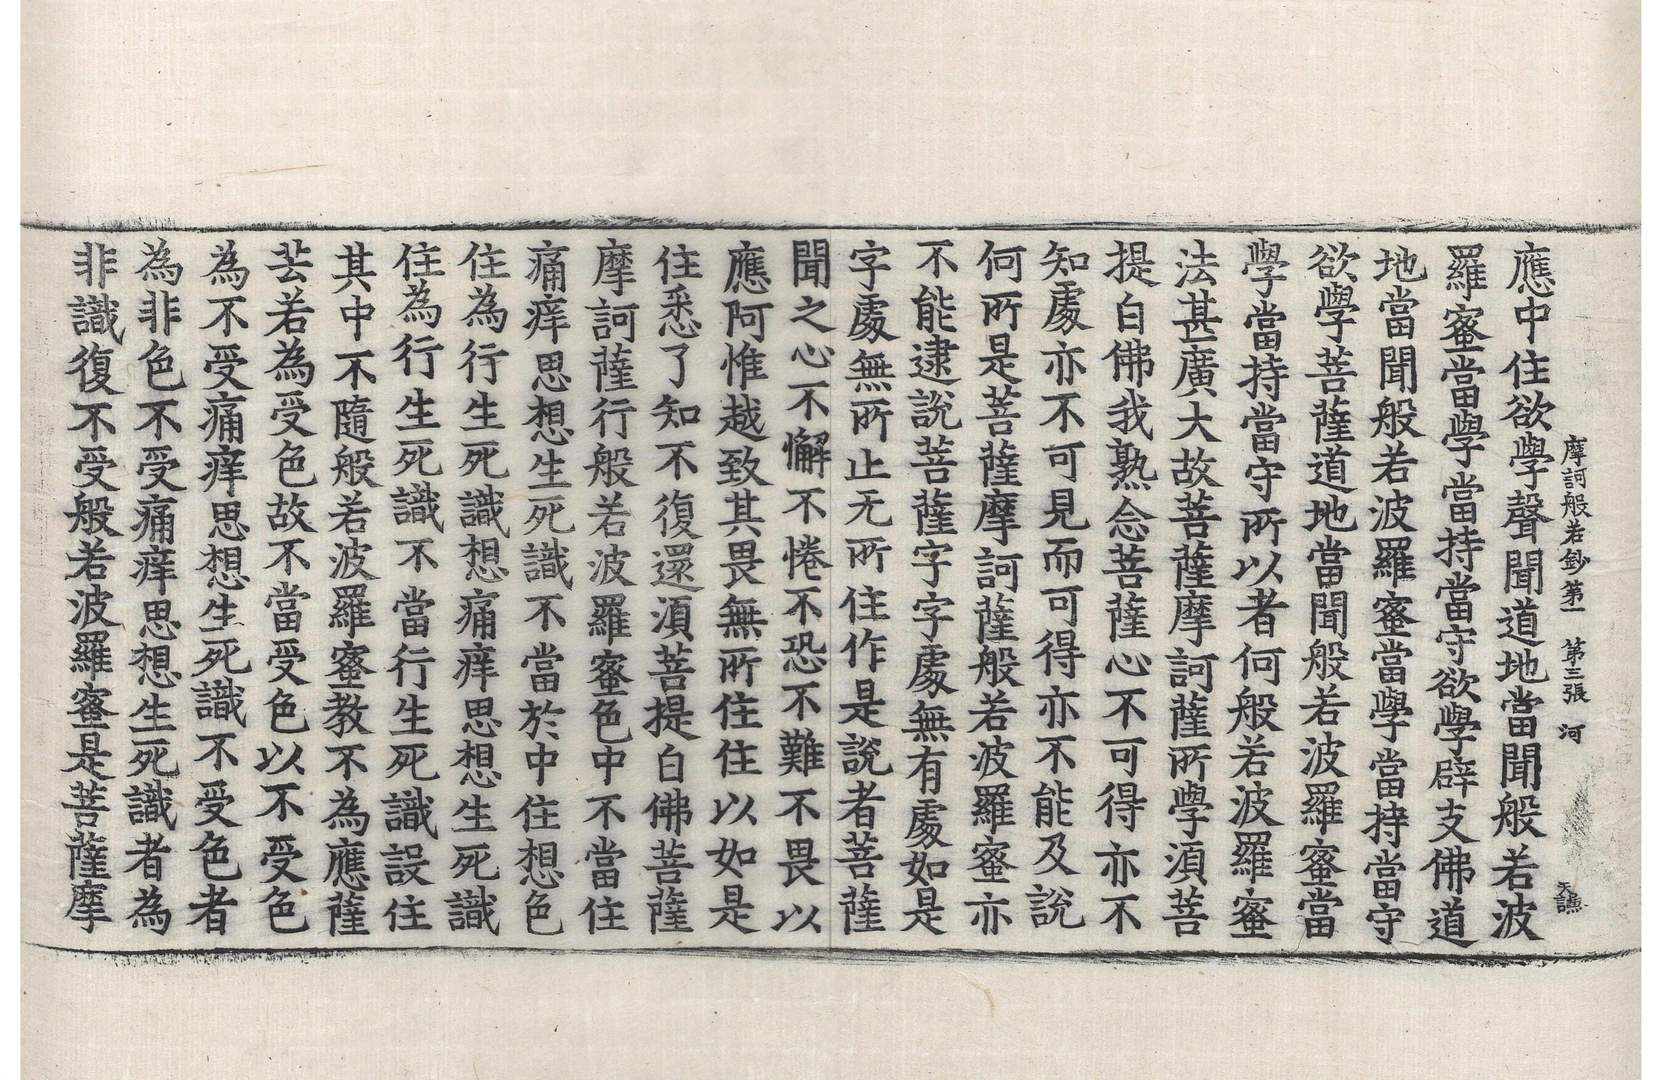 摩訶般若鈔第一 第三張 河
天譙
應中住欲學聲聞道地當聞般若波
羅蜜當學當持當守欲學辟支佛道
地當聞般若波羅蜜當學當持當守
欲學菩薩道地當聞般若波羅蜜當
學當持當守所以者何般若波羅蜜
法甚廣大故菩薩摩訶薩所學湏菩
提白佛我熟念菩薩心不可得亦不
知處亦不可見而可得亦不能及說
何所是菩薩摩訶薩般若波羅蜜亦
不能逮說菩薩字字處無有處如是
字處無所止无所住作是說者菩薩
聞之心不懈不惓不恐不難不畏以
應阿惟越致其畏無所住住以如是
住悉了知不復還湏菩提白佛菩薩
摩訶薩行般若波羅蜜色中不當住
痛痒思想生死識不當於中住想色
住為行生死識想痛痒思想生死識
住為行生死識不當行生死識設住
其中不隨般若波羅蜜教不為應薩
芸若為受色故不當受色以不受色
為不受痛痒思想生死識不受色者
為非色不受痛痒思想生死識者為
非識復不受般若波羅蜜是菩薩摩